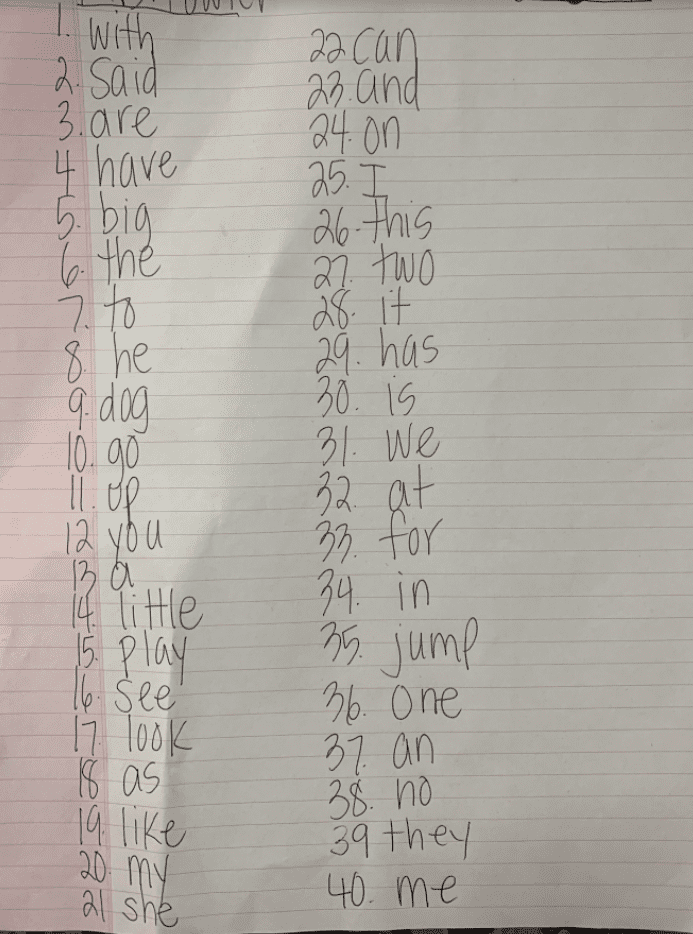 1. with
2. Said
3. are
4 have
5. big
6. the
7. to
8. he
9. dog
10. go
11. up
12 you
13 a
14. little
15. play
16. see
17. look
18 as
19. like
20. my
21 she
22 can
23. and
24. on
25. I
26. this
27. two
28. it
29. has
30. is
31. we
32. at
33. for
34. in
35. jump
36. one
37. an
38. no
39 they
40. me